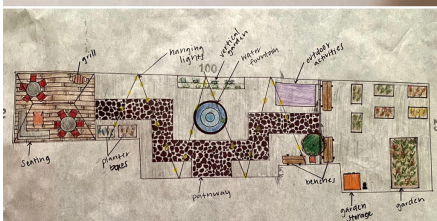 grill
hanging
lights
vertical
garden
100
water
fountain
outdoor
activities
seating
planter
boxes
pathway
benches
garden
storage
garden